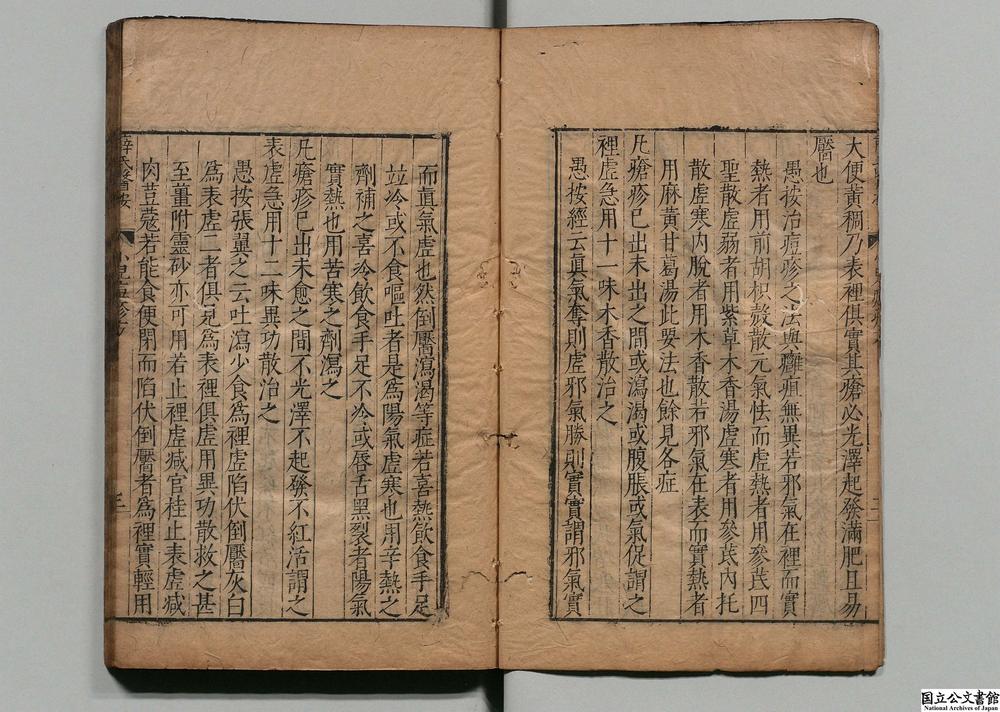 大便黃稠乃表裡俱實其瘡必光澤起發滿肥且易
靨也
愚按治痘疹之法與癰疽無異若邪氣在裡而實
熱者用前胡枳殼散元氣怯而虛熱者用參芪四
聖散虛弱者用紫草木香湯虛寒者用參芪內托
散虛寒內脫者用木香散若邪氣在表而實熱者
用麻黃甘葛湯此要法也餘見各症
凡瘡疹已出未出之間或瀉渴或腹脹或氣促謂之
裡虛急用十一味木香散治之
愚按經云眞氣奪則虛邪氣勝則實實謂邪氣實
而眞氣虛也然倒靨瀉渴等症若喜熱飲食手足
竝冷或不食嘔吐者是爲陽氣虛寒也用辛熱之
劑補之喜冷飲食手足不冷或唇舌黑裂者陽氣
實熱也用苦寒之劑瀉之
凡瘡疹已出未愈之間不光澤不起發不紅活謂之
表虛急用十二味異功散治之
愚按張翼之云吐瀉少食爲裡虛陷伏倒靨灰白
爲表虛二者俱見爲表裡俱虛用異功散救之甚
至薑附靈砂亦可用若止裡虛减官桂止表虛减
肉荳蔻若能食便閉而陷伏倒靨者爲裡實輕用
国立公文書館
National Archives of Japan